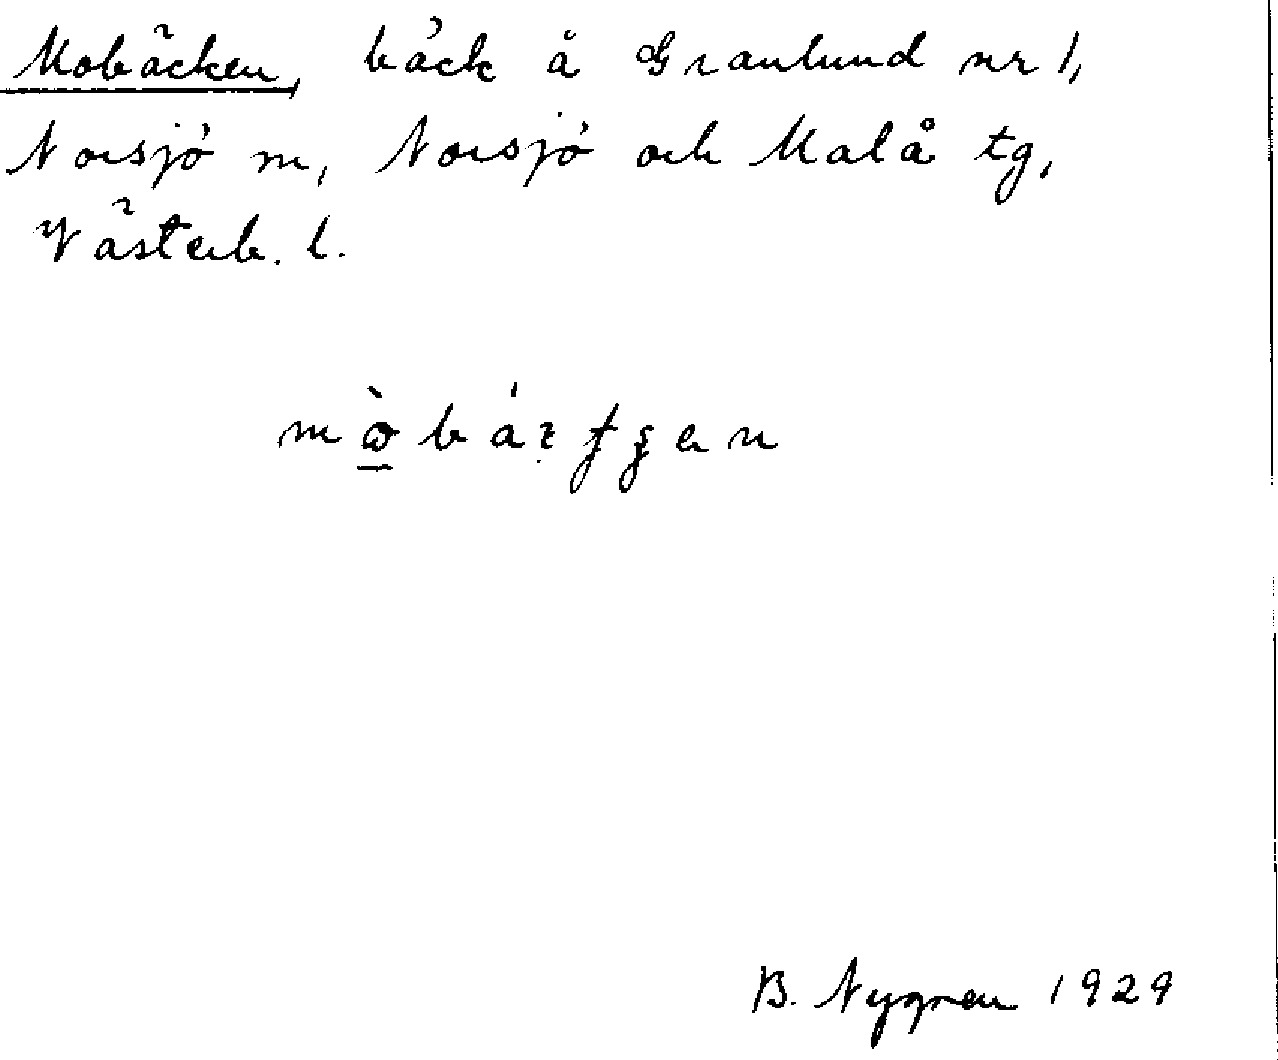 Mobäcken, bäck å Granlund nr 1,
Norsjö m, Norsjö och Malå tg,
Västerb. l.
B. Nygren 1929